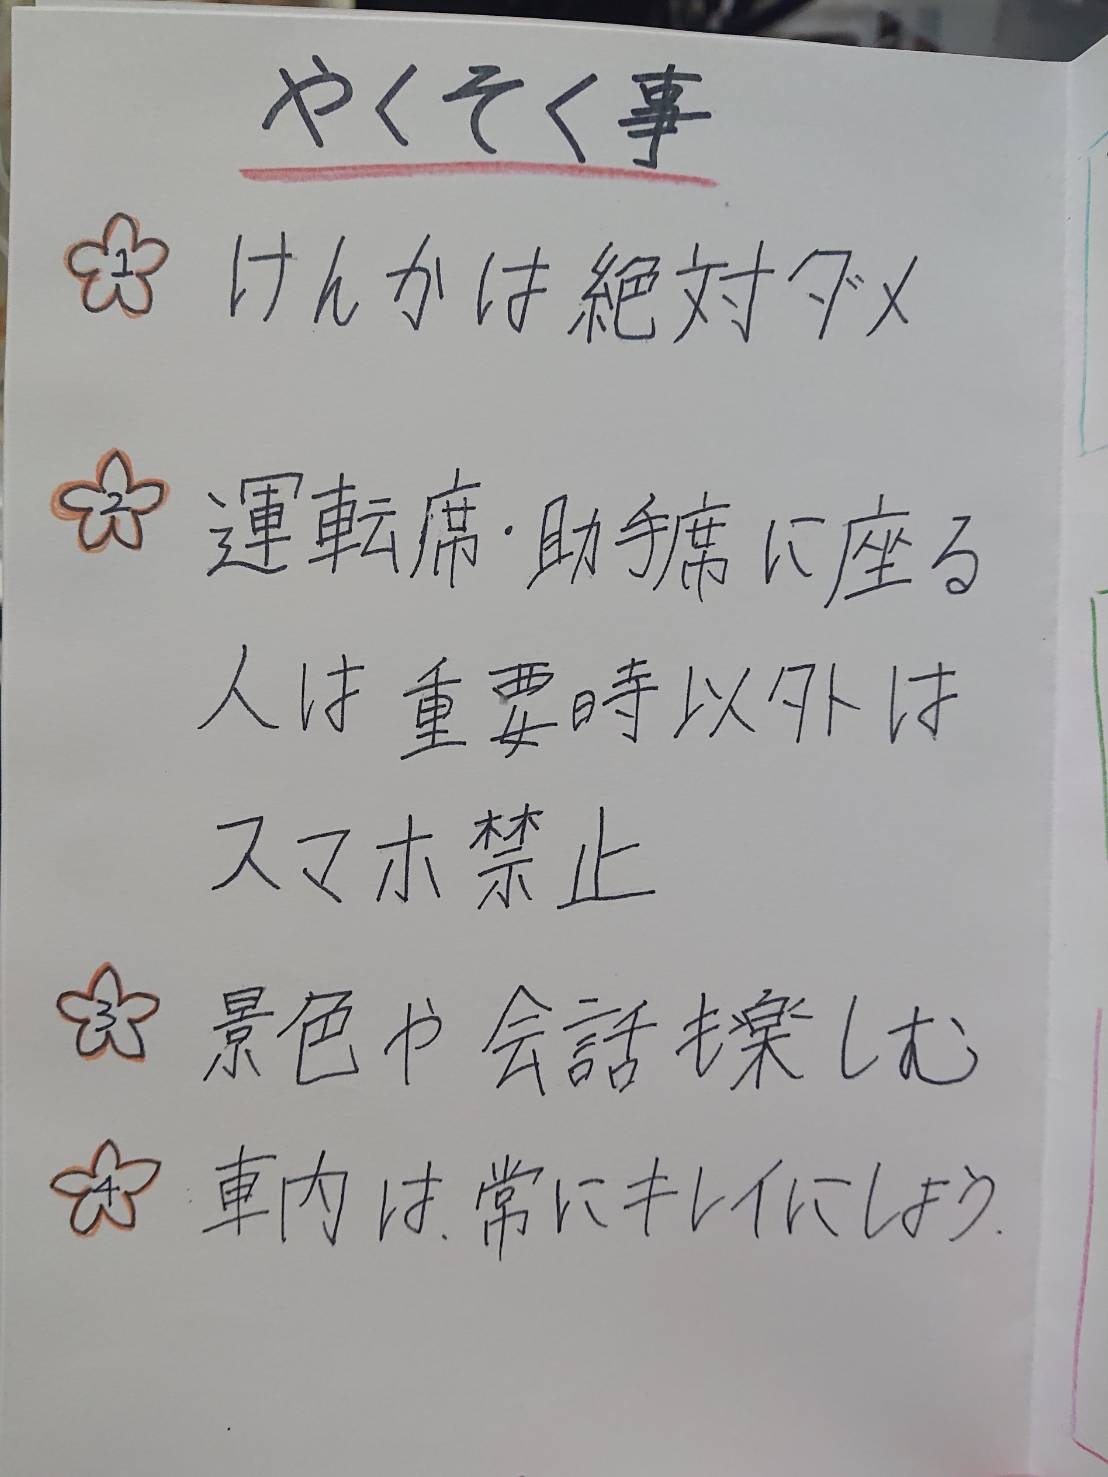 やくそく事
1 けんかは絶対ダメ
2 運転席・助手席に座る
人は重要時以外は
スマホ禁止
3 景色や会話も楽しむ
4 車内は、常にキレイにしよう.